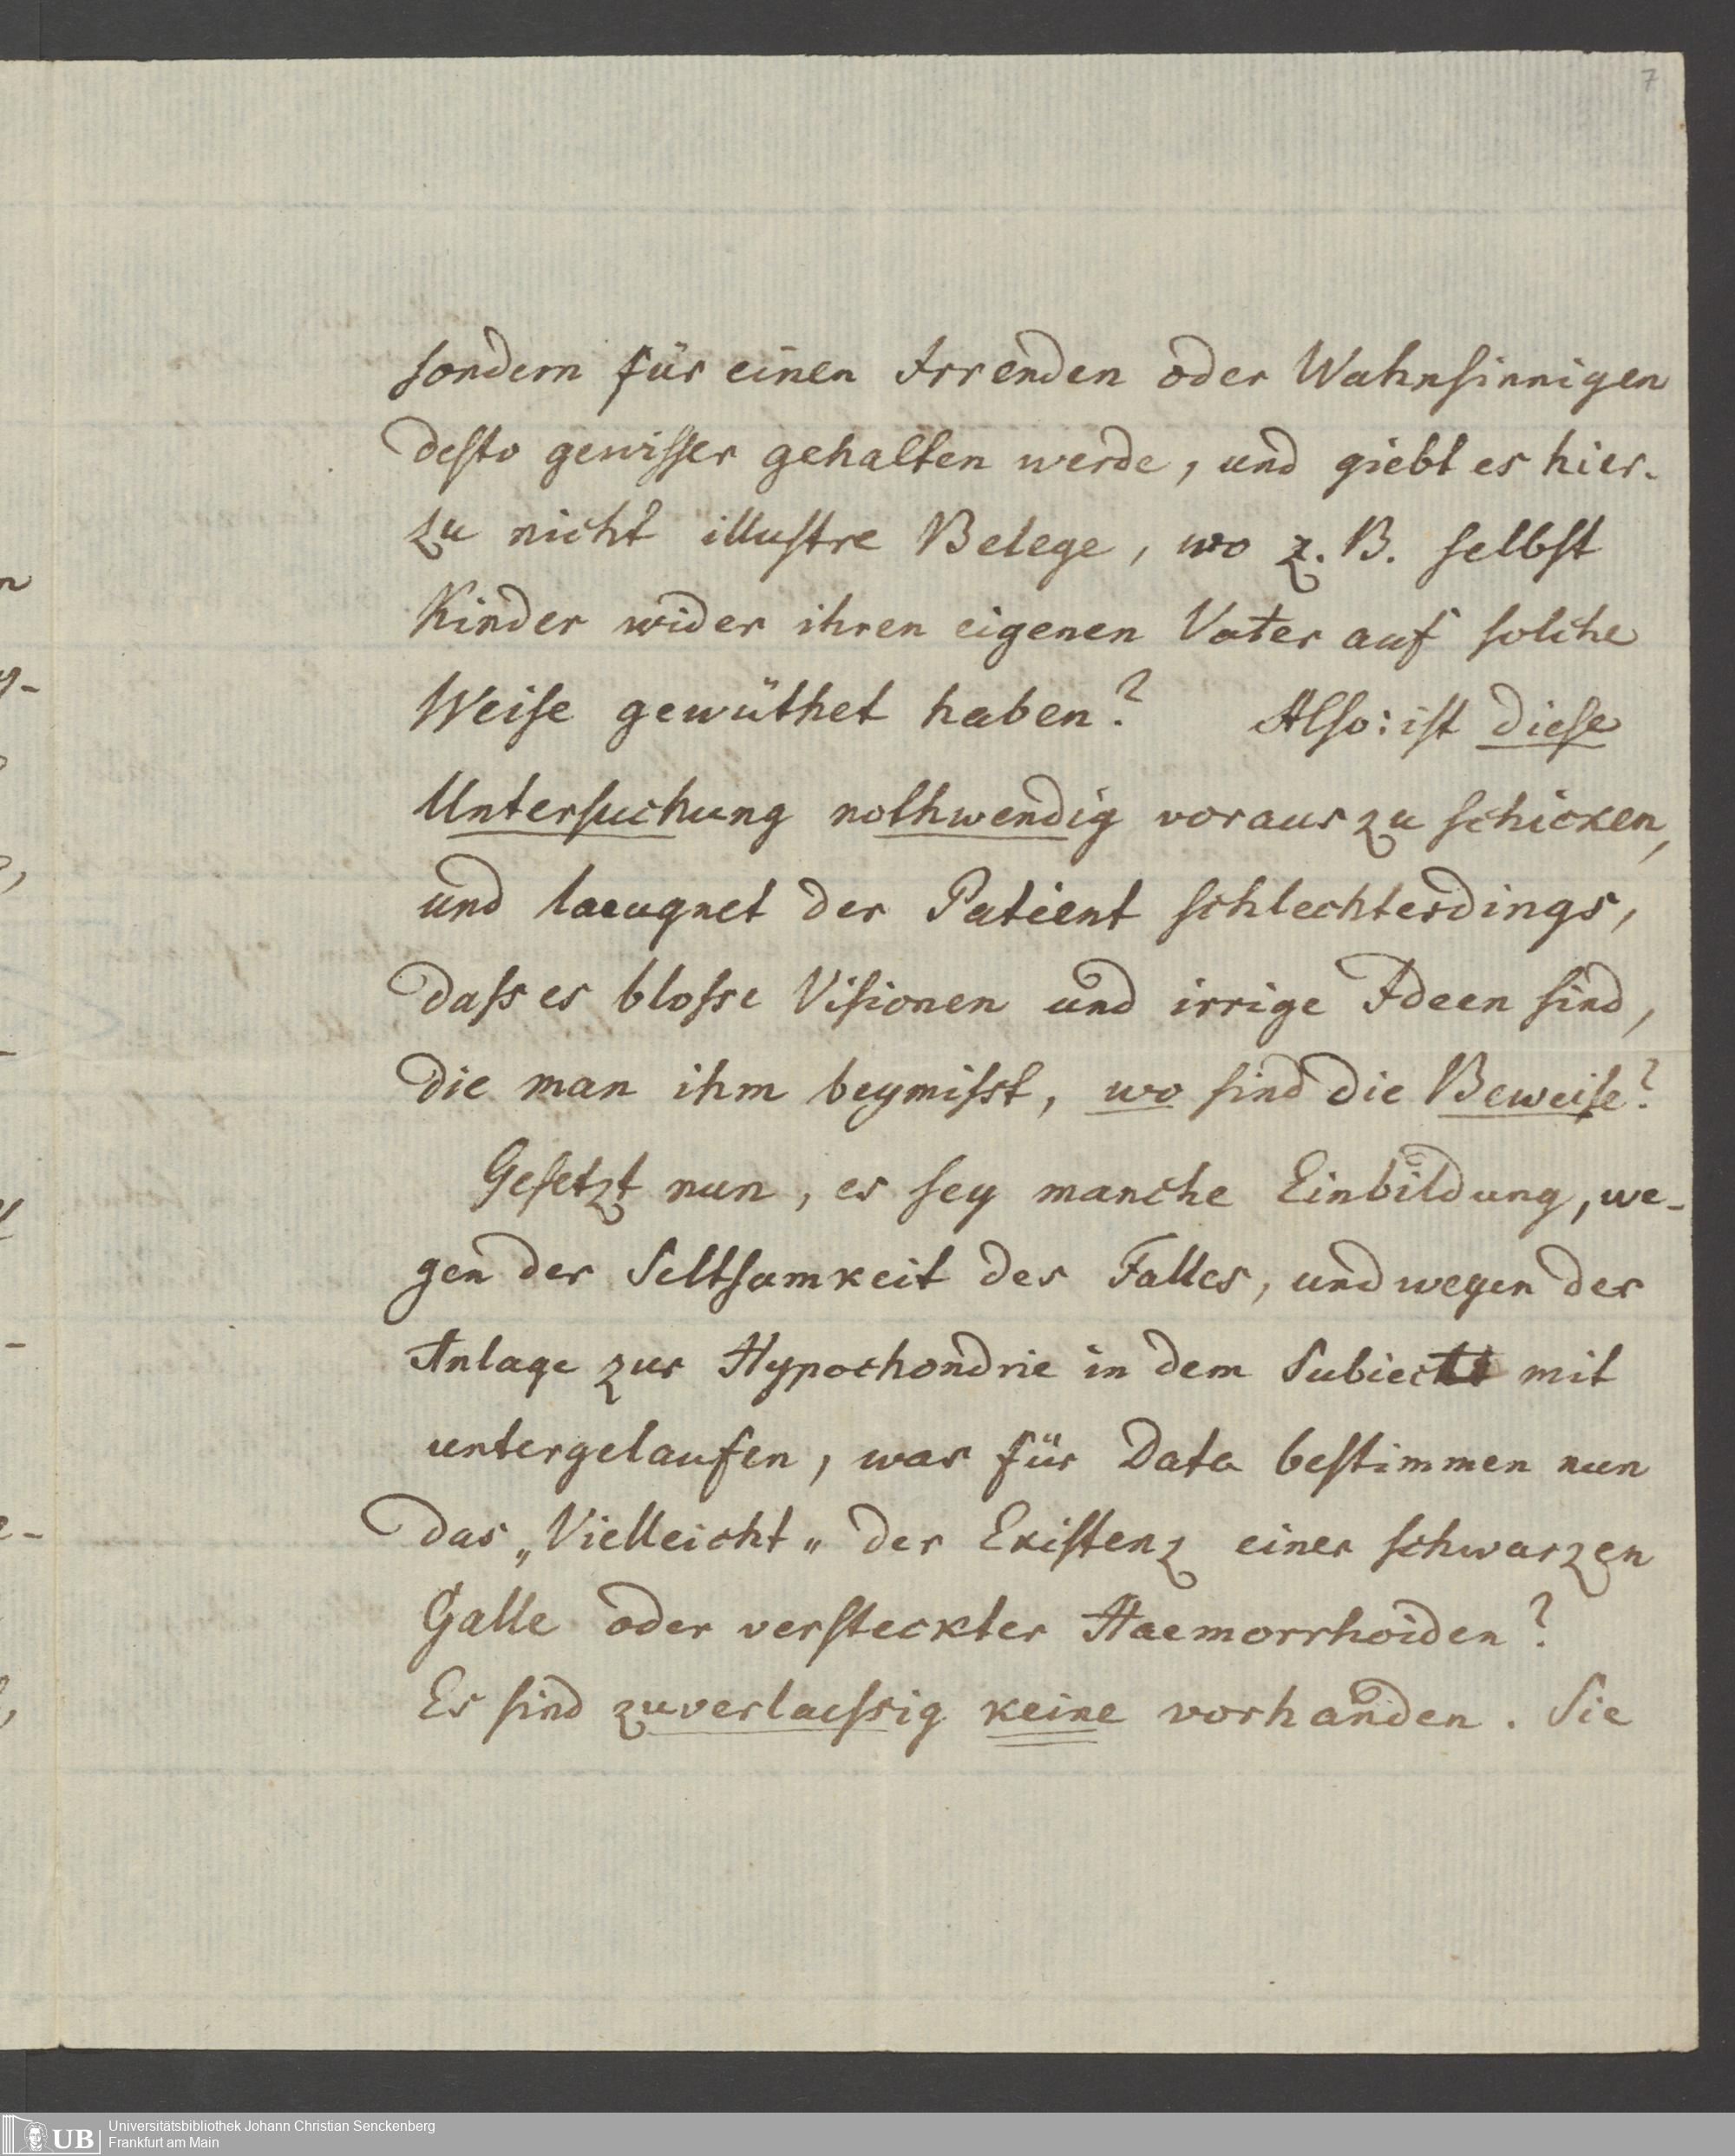 7
sondern für einen Irrenden oder Wahnsinnigen
desto gewisser gehalten werde, und giebt es hier-
zu nicht illustre Belege, wo z. B. selbst
Kinder wider ihren eigenen Vater auf solche
Weise gewüthet haben? Also: ist diese
Untersuchung nothwendig voraus zu schicken,
und laeugnet der Patient schlechterdings,
dass es blosse Visionen und irrige Ideen sind,
die man ihm beymisst, wo sind die Beweise?
Gesetzt nun, es sey manche Einbildung, we-
gen der Seltsamkeit des Falles, und wegen der
Anlage zur Hypochondrie in dem Subiect mit
untergelaufen, was für Data bestimmen nun
das „Vielleicht„ der Existenz einer schwarzen
Galle oder versteckter Haemorrhoiden?
Es sind zuverlaessig keine vorhanden. Sie
UB
Universitätsbibliothek Johann Christian Senckenberg
Frankfurt am Main